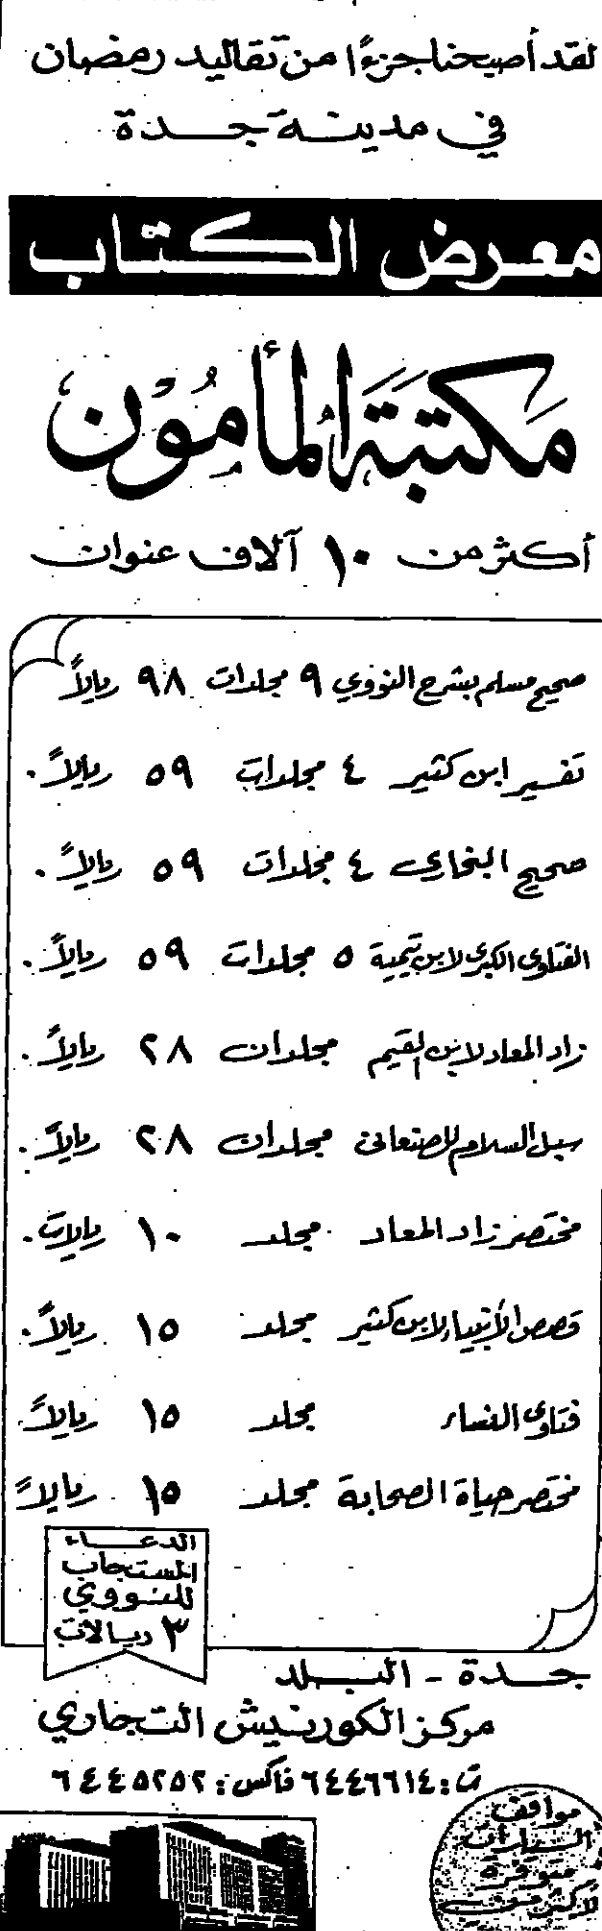 لقد أصبحنا جزءًا من تقاليد رمضان
في مدينة جدة
معرض الكتاب
مكتبة المأمون
أكثر من ١٠ آلاف عنوان
صحيح مسلم بشرح النووي ٩ مجلدات ٩٨ ريالاً
تفسير ابن كثير ٤ مجلدات ٥٩ ريالاً.
صحيح البخاري ٤ مجلدات ٥٩ ريالاً.
الفتاوى الكبرى لابن تيمية ٥ مجلدات ٥٩ ريالاً.
زاد المعاد لابن القيم مجلدان ٢٨ ريالاً.
سبل السلام للصنعاني مجلدان ٢٨ ريالاً.
مختصر زاد المعاد مجلد ١٠ ريالات.
قصص الأنبياء لابن كثير مجلد ١٥ ريالاً.
فتاوى النساء مجلد ١٥ ريالاً
مختصر حياة الصحابة مجلد ١٥ ريالاً
الدعاء
المستجاب
للنووي
٣ ريالات
جدة - البلد
مركز الكورنيش التجاري
ت: ٦٤٤٦٦١٤ فاكس: ٦٤٤٥٢٥٢
مواقف
السيارات
متوفرة
لأكثر من